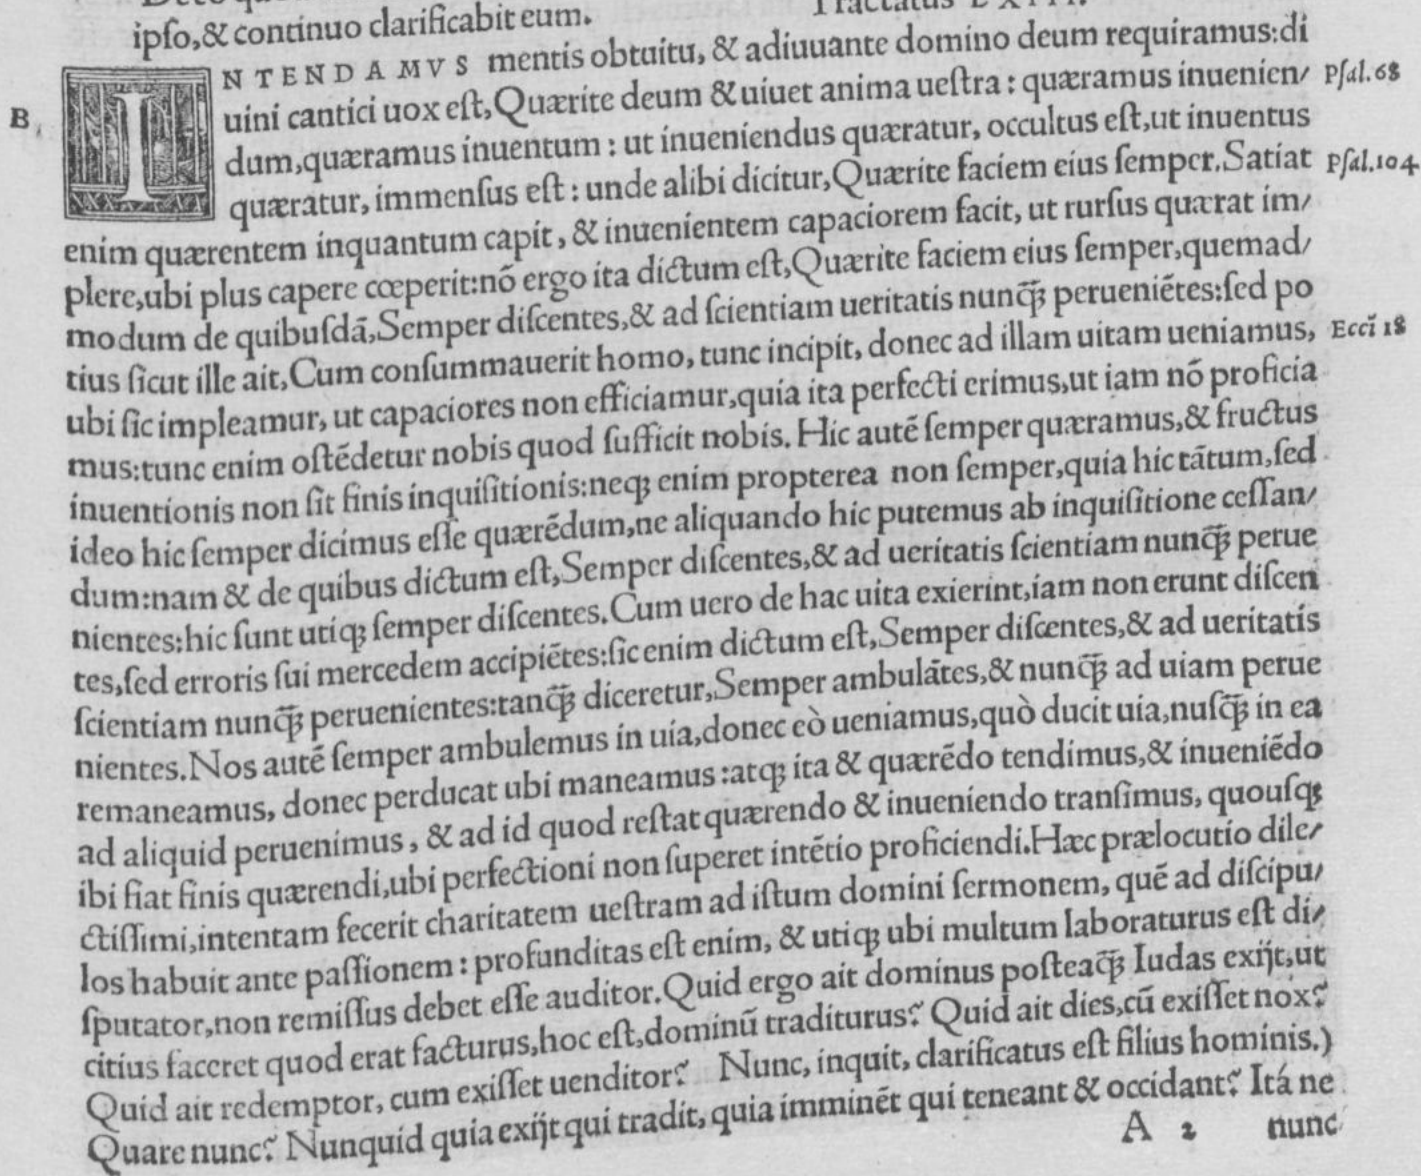 ipſo,& continuo clarificabit eum. Tractatus LXIII.
INTENDAMVS mentis obtuitu, & adiuuante domino deum requiramus:di
B uini cantici uox eſt,Quærite deum & uiuet anima ueſtra : quæramus inuenien/ Pſal.68
dum,quæramus inuentum : ut inueniendus quæratur, occultus eſt,ut inuentus
quæratur, immenſus eſt : unde alibi dicitur,Quærite faciem eius ſemper.Satiat Pſal.104
enim quærentem inquantum capit, & inuenientem capaciorem facit, ut rurſus quærat im/
plere,ubi plus capere cœperit:nõ ergo ita dictum eſt,Quærite faciem eius ſemper,quemad/
modum de quibuſdã,Semper diſcentes,& ad ſcientiam ueritatis nunq̃ꝫ perueniẽtes:ſed po
tius ſicut ille ait,Cum conſummauerit homo, tunc incipit, donec ad illam uitam ueniamus, Eccĩ 18
ubi ſic impleamur, ut capaciores non efficiamur,quia ita perfecti erimus,ut iam nõ proficia
mus:tunc enim oſtẽdetur nobis quod ſufficit nobis. Hic autẽ ſemper quæramus,& fructus
inuentionis non ſit finis inquiſitionis:neqꝫ enim propterea non ſemper,quia hic tãtum,ſed
ideo hic ſemper dicimus eſſe quærẽdum,ne aliquando hic putemus ab inquiſitione ceſſan/
dum:nam & de quibus dictum eſt,Semper diſcentes,& ad ueritatis ſcientiam nunq̃ꝫ perue
nientes:hic ſunt utiqꝫ ſemper diſcentes.Cum uero de hac uita exierint,iam non erunt diſcen
tes,ſed erroris ſui mercedem accipiẽtes:ſic enim dictum eſt,Semper diſcentes,& ad ueritatis
ſcientiam nunq̃ꝫ peruenientes:tanq̃ꝫ diceretur,Semper ambulãtes,& nunq̃ꝫ ad uiam perue
nientes.Nos autẽ ſemper ambulemus in uia,donec eò ueniamus,quò ducit uia,nuſq̃ꝫ in ea
remaneamus, donec perducat ubi maneamus :atqꝫ ita & quærẽdo tendimus,& inueniẽdo
ad aliquid peruenimus, & ad id quod reſtat quærendo & inueniendo tranſimus, quouſqꝫ
ibi fiat finis quærendi,ubi perfectioni non ſuperet intẽtio proficiendi.Hæc prælocutio dile/
ctiſſimi,intentam fecerit charitatem ueſtram ad iſtum domini ſermonem, quẽ ad diſcipu/
los habuit ante paſſionem : profunditas eſt enim, & utiqꝫ ubi multum laboraturus eſt di/
ſputator,non remiſſus debet eſſe auditor.Quid ergo ait dominus poſteaq̃ꝫ Iudas exijt,ut
citius faceret quod erat facturus,hoc eſt,dominũ traditurus? Quid ait dies,cũ exiſſet nox?
Quid ait redemptor, cum exiſſet uenditor? Nunc, inquit, clarificatus eſt filius hominis.)
Quare nunc? Nunquid quia exijt qui tradit, quia imminẽt qui teneant & occidant? Itá ne
A 2 nunc